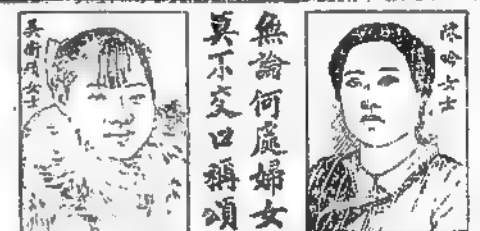 陳吟女士
無論何處婦女
莫不交口稱頌
吳女士